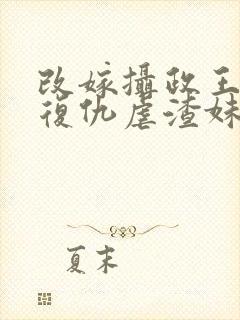 改嫁攝政王
復仇虐渣妹
夏末